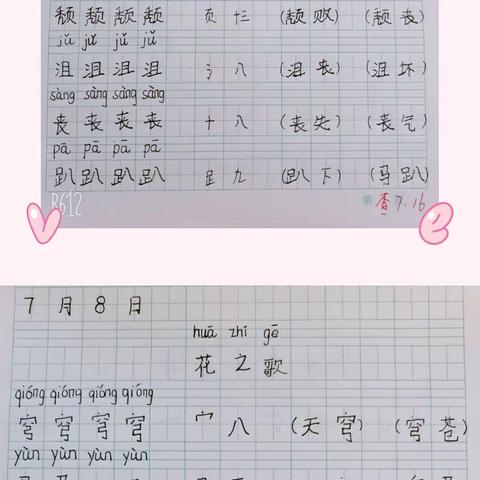 颓 颓 颓 颓 页 十三 (颓败) (颓丧)
jǔ jǔ jǔ jǔ
沮 沮 沮 沮 氵 八 (沮丧) (沮坏)
sàng sàng sàng sàng
丧 丧 丧 丧 十 八 (丧失) (丧气)
pā pā pā pā
趴 趴 趴 趴 ⻊ 九 (趴下) (马趴)
B612 第 查 7.16
7 月 8 日
huā zhī gē
花 之 歌
qióng qióng qióng qióng
穹 穹 穹 穹 宀 八 (天穹) (穹苍)
yùn yùn yùn yùn